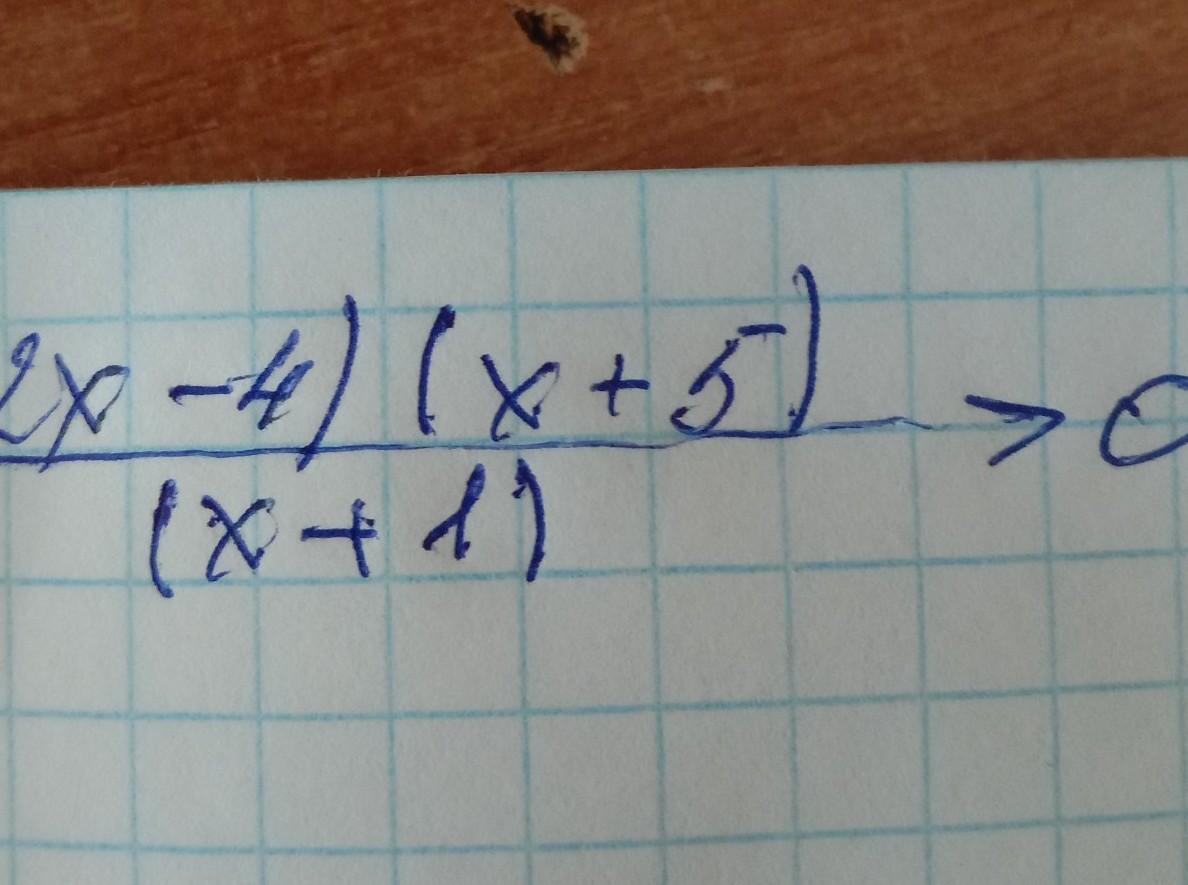 2x - 4) (x + 5) > 0
(x + 1)